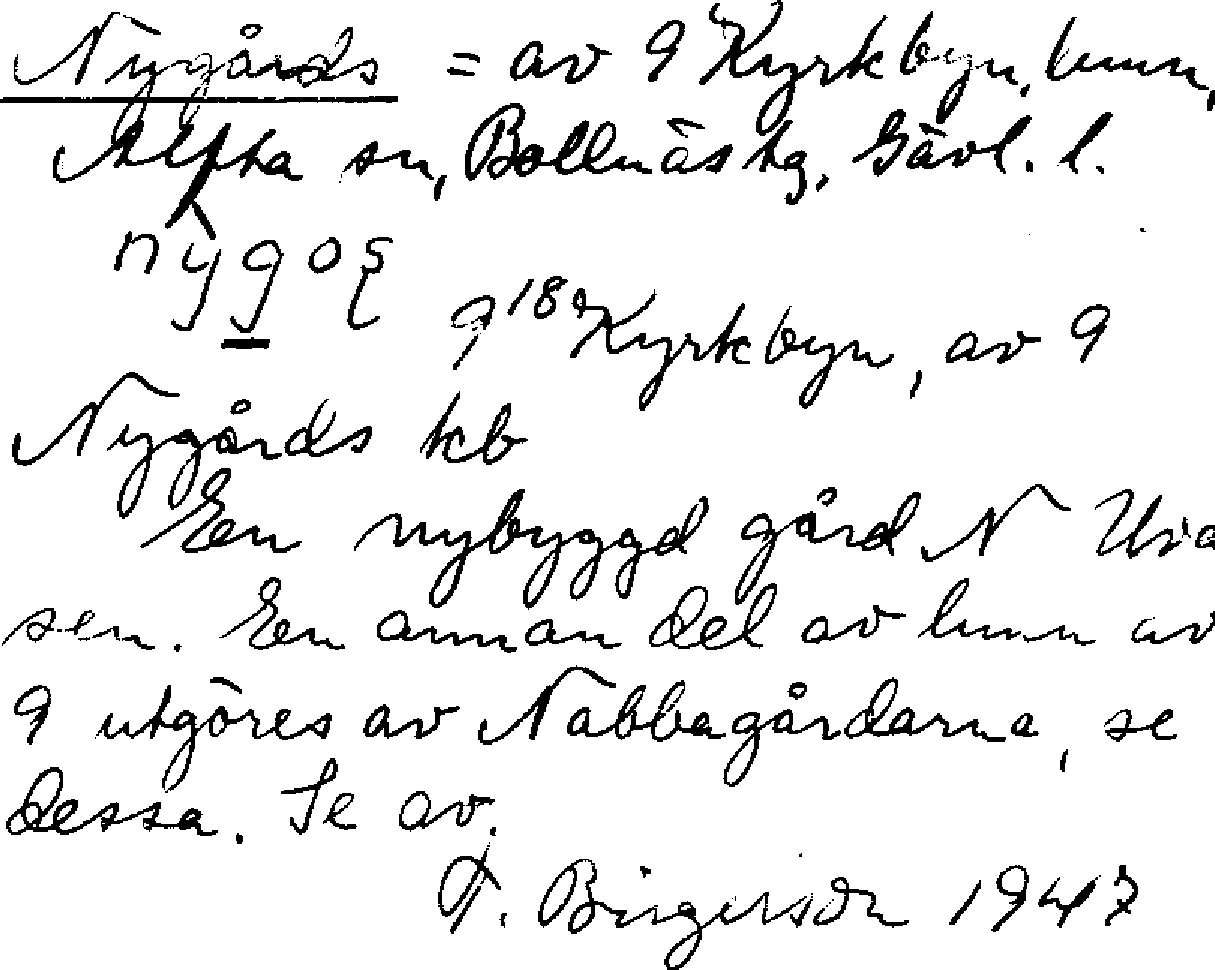 Nygårds = av 9 Kyrkbyn, hmn,
Alfta sn, Bollnäs tg, Gävl. l.
nỳgoʂ
9¹⁸ Kyrkbyn, av 9
Nygårds kb
En nybyggd gård N Uva
sen. En annan del av hmn av
9 utgöres av Nabbagårdarna, se
dessa. Se av.
F. Birgerson 1947